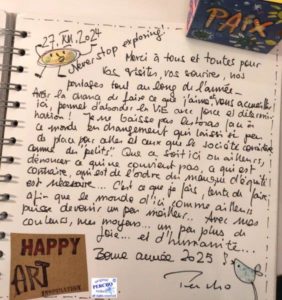 27.XII.2024
Never stop exploring!
PAIX
Merci à tous et toutes pour
vos visites, vos sourires, nos
partages tout au long de l'année.
Avoir la chance de faire ce que j'aime, vous accueillir
ici, permet d'aborder la VIE avec force et détermi-
nation! "Je ne baisse pas les bras face à
ce monde en changement qui laisse si peu
de place pour celles et ceux que la société considère
comme "petit"; Que ce soit ici ou ailleurs,
dénoncer ce qui ne convient pas, ce qui est
contraire, qui est de l'ordre du manque d'équité!
est nécessaire... C'est ce que je fais, tente de faire,
afin que le monde d'ici comme ailleurs
puisse devenir un peu meilleur... Avec mes
couleurs, mes moyens... un peu plus de
joie... et d'humanité...
Bonne année 2025!
Percho
HAPPY
ART
PERCHO